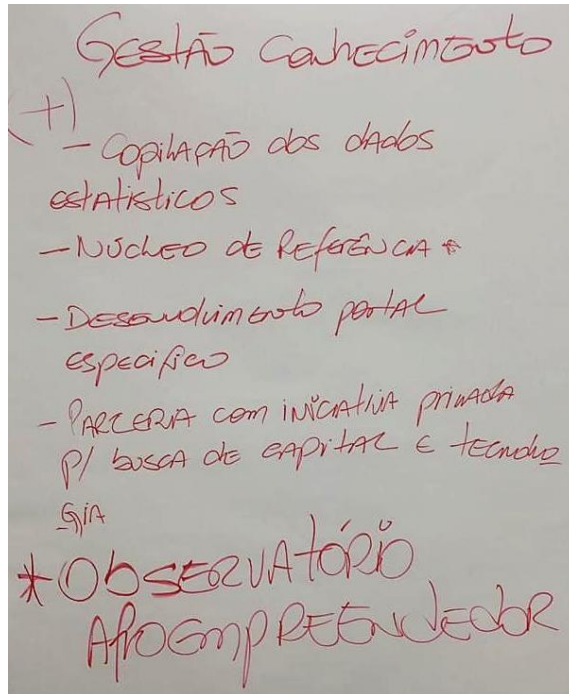 Gestão Conhecimento
(+)
- Copilação dos dados
estatisticos
- Núcleo de Referência *
- Desenvolvimento portal
especifico
- Parceria com iniciativa privada
p/ busca de capital e tecnolo
gia
* Observatório
Afroempreendedor